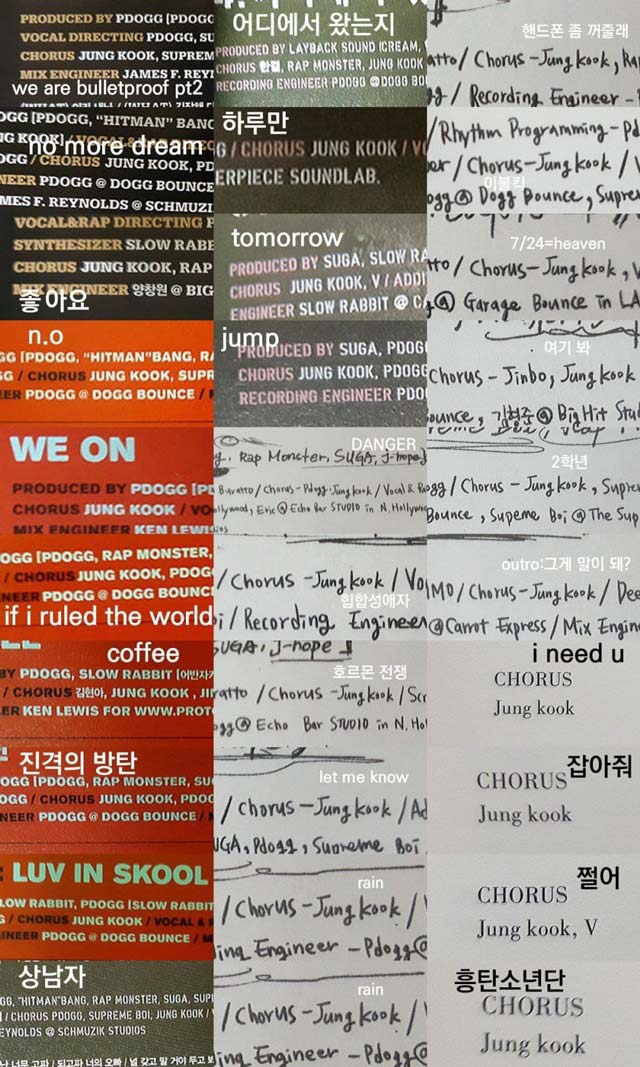 PRODUCED BY PDOGG [PDOGG
VOCAL DIRECTING PDOGG,
CHORUS JUNG KOOK, SUPREM
MIX ENGINEER JAMES F. REY
we are bulletproof pt2
OGG [PDOGG, "HITMAN" BANG, R
KOOK] / VOCAL&RAP DIREC
no more dream
/ CHORUS JUNG KOOK, PD
NEER PDOGG @ DOGG BOUNCE
MES F. REYNOLDS @ SCHMUZI
VOCAL&RAP DIRECTING P
SYNTHESIZER SLOW RABB
CHORUS JUNG KOOK, RAP
MIX ENGINEER 양창원 @ BIG
좋아요
n.o
GG [PDOGG, "HITMAN"BANG, RA
G / CHORUS JUNG KOOK, SUPR
EER PDOGG @ DOGG BOUNCE /
WE ON
PRODUCED BY PDOGG [PD
CHORUS JUNG KOOK / VO
MIX ENGINEER KEN LEWIS
OGG [PDOGG, RAP MONSTER,
/ CHORUS JUNG KOOK, PDOGG
NEER PDOGG @ DOGG BOUNCE
if i ruled the world
coffee
BY PDOGG, SLOW RABBIT [어반자카
/ CHORUS 김현아, JUNG KOOK , JIN
ER KEN LEWIS FOR WWW.PROT
진격의 방탄
OGG [PDOGG, RAP MONSTER, SU
OGG / CHORUS JUNG KOOK, PDOG
NEER PDOGG @ DOGG BOUNCE /
: LUV IN SKOOL
LOW RABBIT, PDOGG [SLOW RABBIT
G / CHORUS JUNG KOOK / VOCAL &
INEER PDOGG @ DOGG BOUNCE / M
상남자
GG, "HITMAN"BANG, RAP MONSTER, SUGA, SUP
CHORUS JUNG KOOK, PDOGG, SUPREME BOI, JUNG KOOK / V
EYNOLDS @ SCHMUZIK STUDIOS
난 너무 고파 / 되고파 너의 오빠 / 널 갖고 말 거야 두고 보
어디에서 왔는지
PRODUCED BY LAYBACK SOUND [CREAM,
CHORUS 한결, RAP MONSTER, JUNG KOOK
RECORDING ENGINEER PDOGG @DOGG BO
하루만
G / CHORUS JUNG KOOK / VO
ERPIECE SOUNDLAB.
tomorrow
PRODUCED BY SUGA, SLOW RA
CHORUS JUNG KOOK, V / ADDI
ENGINEER SLOW RABBIT @ CA
jump
PRODUCED BY SUGA, PDOG
CHORUS JUNG KOOK, PDOG
RECORDING ENGINEER PDO
DANGER
g, Rap Monster, SUGA, J-hope]
Buratto / Chorus - Pdogg, Jung Kook / Vocal & Ra
ollywood, Eric @ Echo Bar STUDIO in N. Hollywoo
/ Chorus - Jung Kook / Vo
힙합성애자
oi / Recording Engineer
SUGA, J-hope]
호르몬 전쟁
ratto / Chorus - Jung Kook / Scr
ogg @ Echo Bar STUDIO in N. Hol
let me know
/ Chorus - Jung Kook / Ad
UGA, Pdogg, Supreme Boi
rain
/ Chorus - Jung Kook /
ing Engineer - Pdogg @
rain
/ Chorus - Jung Kook /
ing Engineer - Pdogg @
핸드폰 좀 꺼줄래
atto / Chorus - Jung Kook, Rap
gg / Recording Engineer - P
/ Rhythm Programming - Pd
er / Chorus - Jung Kook /
이불킥
ogg @ Dogg Bounce, Supre
7/24=heaven
tto / Chorus - Jung Kook, V
g @ Garage Bounce in LA
여기 봐
Chorus - Jinbo, Jung Kook
ounce, 김형준 @ Big Hit Stud
2학년
gg / Chorus - Jung Kook, Supre
Bounce, Supeme Boi @ The Sup
outro:그게 말이 돼?
MO / Chorus - Jung Kook / Dee
@ Carrot Express / Mix Engin
i need u
CHORUS
Jung kook
잡아줘
CHORUS
Jung kook
쩔어
CHORUS
Jung kook, V
흥탄소년단
CHORUS
Jung kook